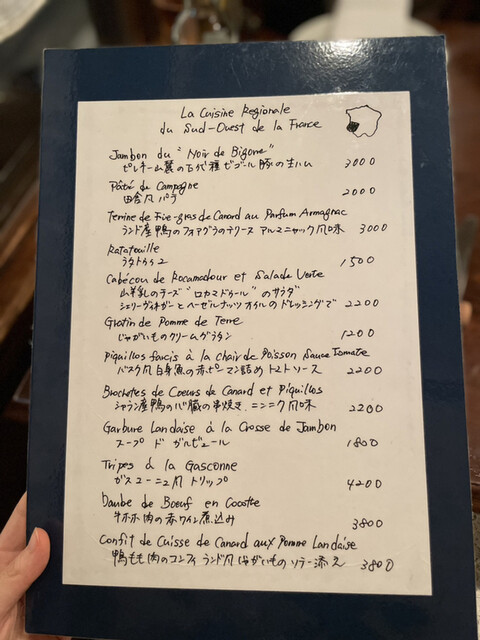 La Cuisine Regionale
du Sud-Ouest de la France
Jambon du "Noir de Bigorre"
ピレネー山麓の古代種ビゴール豚の生ハム 3000
Pâté de Campagne
田舎風パテ 2000
Terrine de Foie-gras de Canard au Parfum Armagnac
ランド産鴨のフォアグラのテリーヌ アルマニャック風味 3000
Ratatouille
ラタトゥイユ 1500
Cabécou de Rocamadour et Salade Verte
山羊乳のチーズ"ロカマドゥール"のサラダ
シェリーヴィネガーとヘーゼルナッツオイルのドレッシングで 2200
Gratin de Pomme de Terre
じゃがいものクリームグラタン 1200
Piquillos farcis à la chair de Poisson Sauce Tomate
バスク風白身魚の赤ピーマン詰め トマトソース 2200
Brochettes de Coeurs de Canard et Piquillos
シャラン産鴨の心臓の串焼き、ニンニク風味 2200
Garbure Landaise à la Crosse de Jambon
スープ ド ガルビュール 1800
Tripes à la Gasconne
ガスコーニュ風 トリップ 4200
Daube de Boeuf en Cocotte
牛ホホ肉の赤ワイン煮込み 3800
Confit de Cuisse de Canard aux Pomme Landaise
鴨もも肉のコンフィ ランド風じゃがいものソテー添え 3800